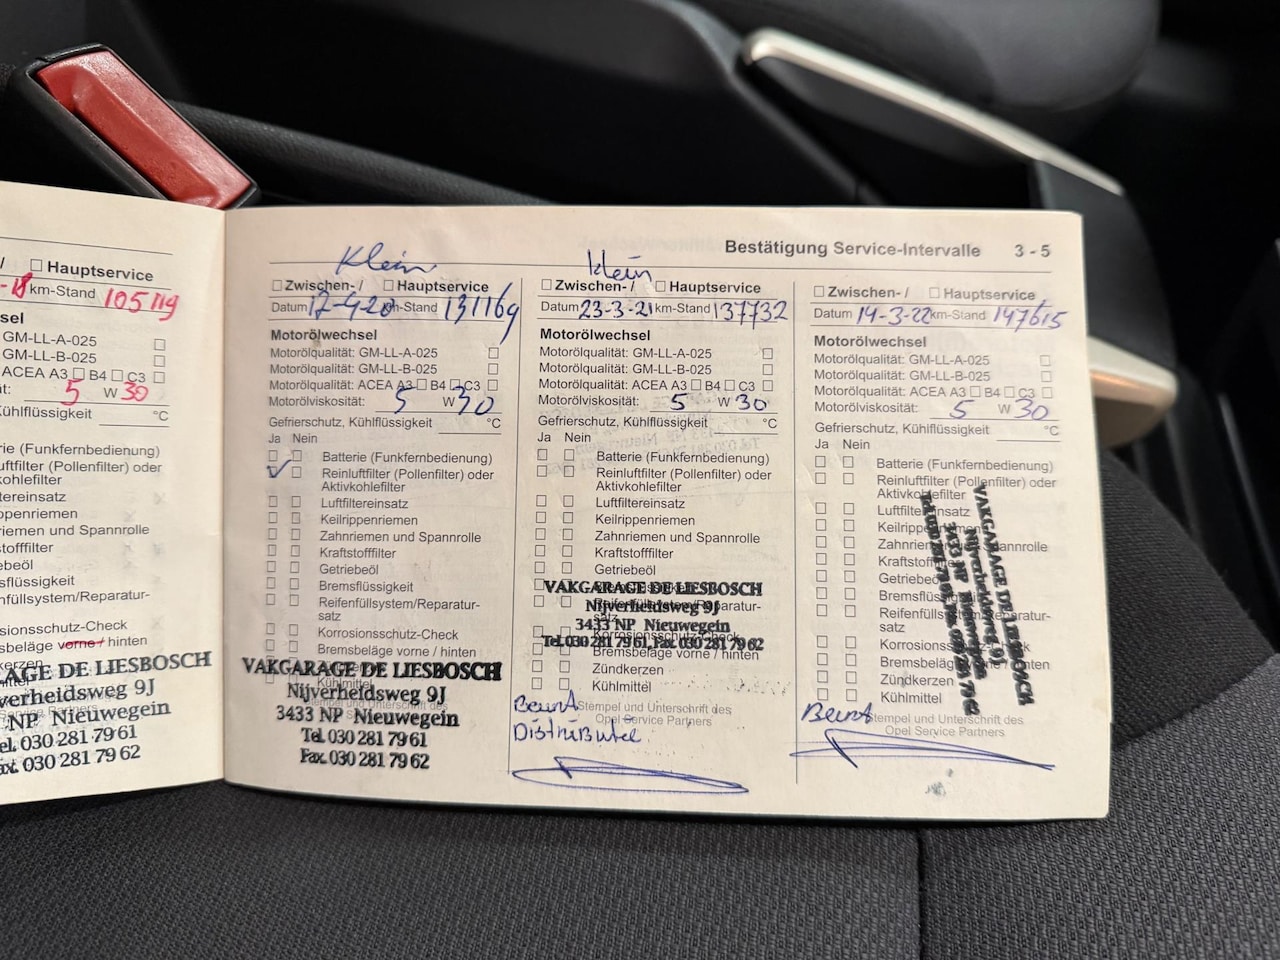 Bestätigung Service-Intervalle 3 - 5
/ Hauptservice
km-Stand 105119
sel
GM-LL-A-025
GM-LL-B-025
ACEA A3 B4 C3
t: 5 W 30
Kühlflüssigkeit °C
rie (Funkfernbedienung)
uftfilter (Pollenfilter) oder
kohlefilter
tereinsatz
ppenriemen
riemen und Spannrolle
stofffilter
iebeöl
sflüssigkeit
nfüllsystem/Reparatur-
sionsschutz-Check
sbeläge vorne / hinten
kerzen
AGE DE LIESBOSCH
verheidsweg 9J
NP Nieuwegein
el. 030 281 79 61
ax. 030 281 79 62
Klein
Zwischen- / Hauptservice
Datum 12-4-20 km-Stand 131169
Motorölwechsel
Motorölqualität: GM-LL-A-025
Motorölqualität: GM-LL-B-025
Motorölqualität: ACEA A3 B4 C3
Motorölviskosität: 5 W 30
Gefrierschutz, Kühlflüssigkeit °C
Ja Nein
Batterie (Funkfernbedienung)
Reinluftfilter (Pollenfilter) oder
Aktivkohlefilter
Luftfiltereinsatz
Keilrippenriemen
Zahnriemen und Spannrolle
Kraftstofffilter
Getriebeöl
Bremsflüssigkeit
Reifenfüllsystem/Reparatur-
satz
Korrosionsschutz-Check
Bremsbeläge vorne / hinten
Kühlmittel
VAKGARAGE DE LIESBOSCH
Nijverheidsweg 9J
3433 NP Nieuwegein
Tel. 030 281 79 61
Fax. 030 281 79 62
klein
Zwischen- / Hauptservice
Datum 23-3-21 km-Stand 137732
Motorölwechsel
Motorölqualität: GM-LL-A-025
Motorölqualität: GM-LL-B-025
Motorölqualität: ACEA A3 B4 C3
Motorölviskosität: 5 W 30
Gefrierschutz, Kühlflüssigkeit °C
Ja Nein
Batterie (Funkfernbedienung)
Reinluftfilter (Pollenfilter) oder
Aktivkohlefilter
Luftfiltereinsatz
Keilrippenriemen
Zahnriemen und Spannrolle
Kraftstofffilter
Getriebeöl
Bremsflüssigkeit
Reifenfüllsystem/Reparatur-
satz
Korrosionsschutz-Check
Bremsbeläge vorne / hinten
Zündkerzen
Kühlmittel
VAKGARAGE DE LIESBOSCH
Nijverheidsweg 9J
3433 NP Nieuwegein
Tel. 030 281 79 61, Fax. 030 281 79 62
Stempel und Unterschrift des
Opel Service Partners
Zwischen- / Hauptservice
Datum 14-3-22 km-Stand 147615
Motorölwechsel
Motorölqualität: GM-LL-A-025
Motorölqualität: GM-LL-B-025
Motorölqualität: ACEA A3 B4 C3
Motorölviskosität: 5 W 30
Gefrierschutz, Kühlflüssigkeit °C
Ja Nein
Batterie (Funkfernbedienung)
Reinluftfilter (Pollenfilter) oder
Aktivkohlefilter
Luftfiltereinsatz
Keilrippenriemen
Zahnriemen und Spannrolle
Kraftstofffilter
Getriebeöl
Bremsflüssigkeit
Reifenfüllsystem/Reparatur-
satz
Korrosionsschutz-Check
Bremsbeläge vorne / hinten
Zündkerzen
Kühlmittel
VAKGARAGE DE LIESBOSCH
Nijverheidsweg 9J
3433 NP Nieuwegein
Tel. 030 281 79 61, Fax. 030 281 79 62
Stempel und Unterschrift des
Opel Service Partners